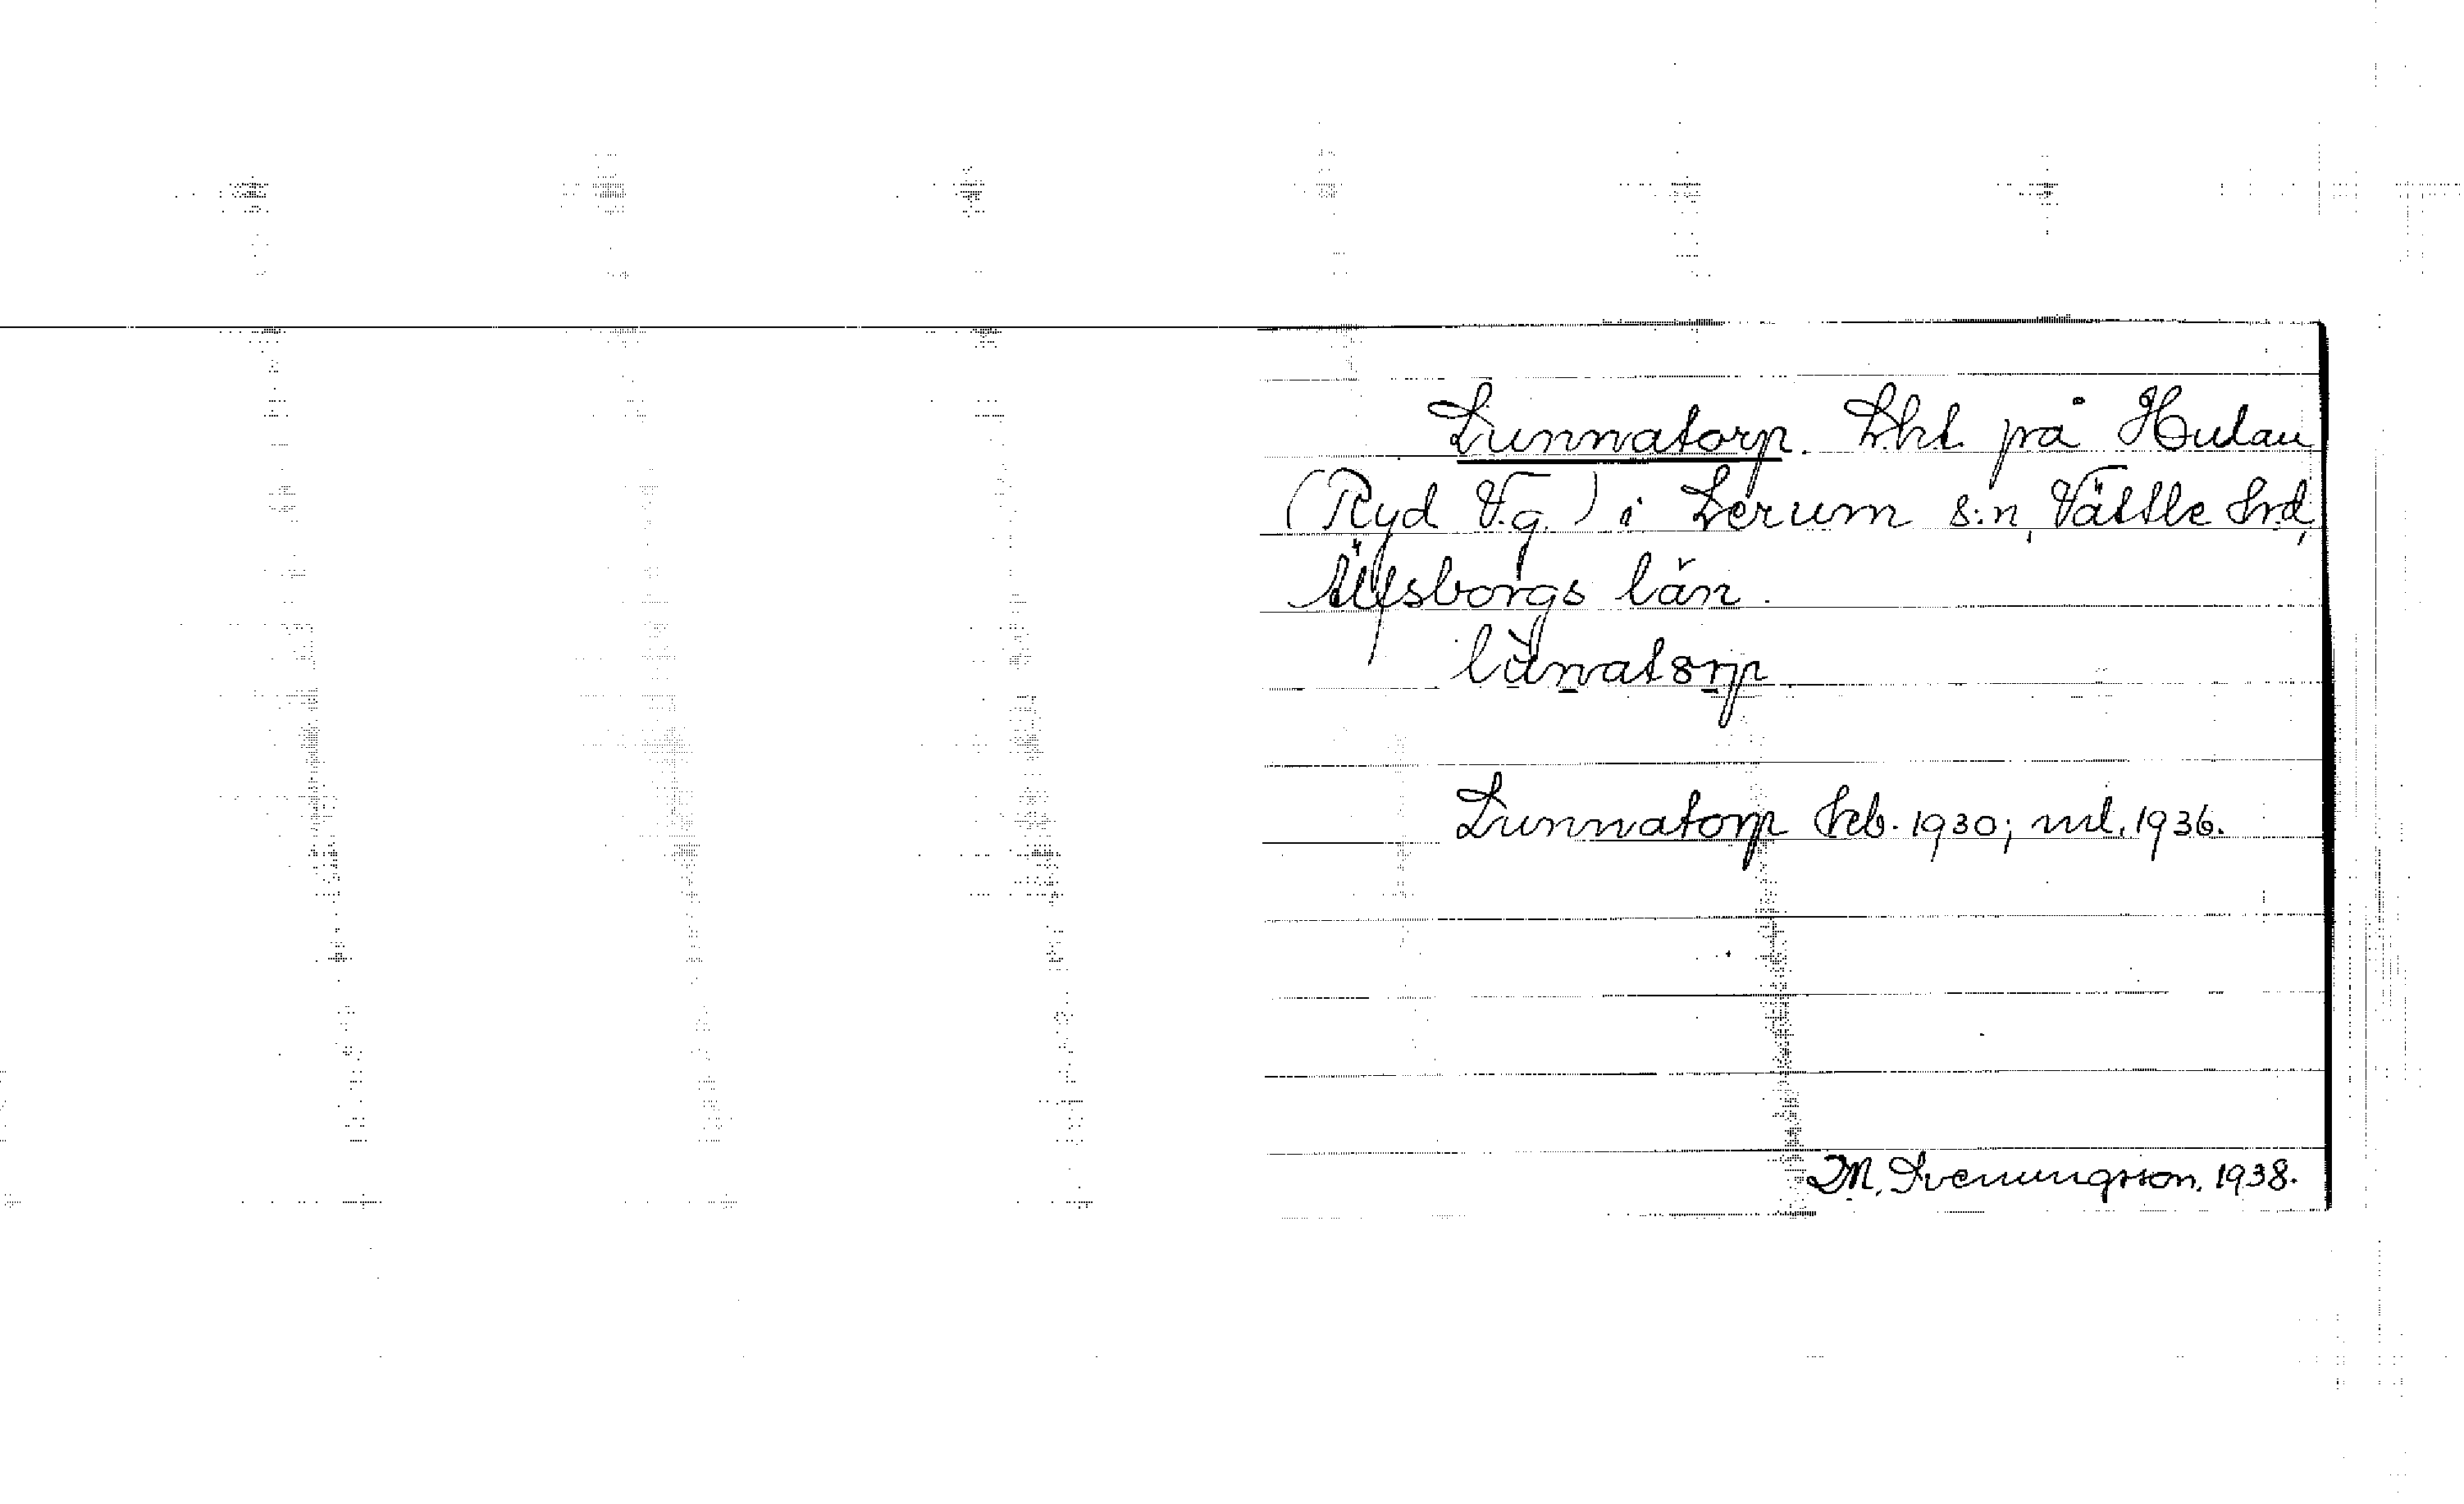 Lunnatorp. Lht. på Hulan
(Ryd V.g.) i Lerum s:n, Vättle hrd,
Älvsborgs län.
lùnatorp
Lunnatorp Jrb. 1930; ml. 1936.
M. Svenungsson. 1938.